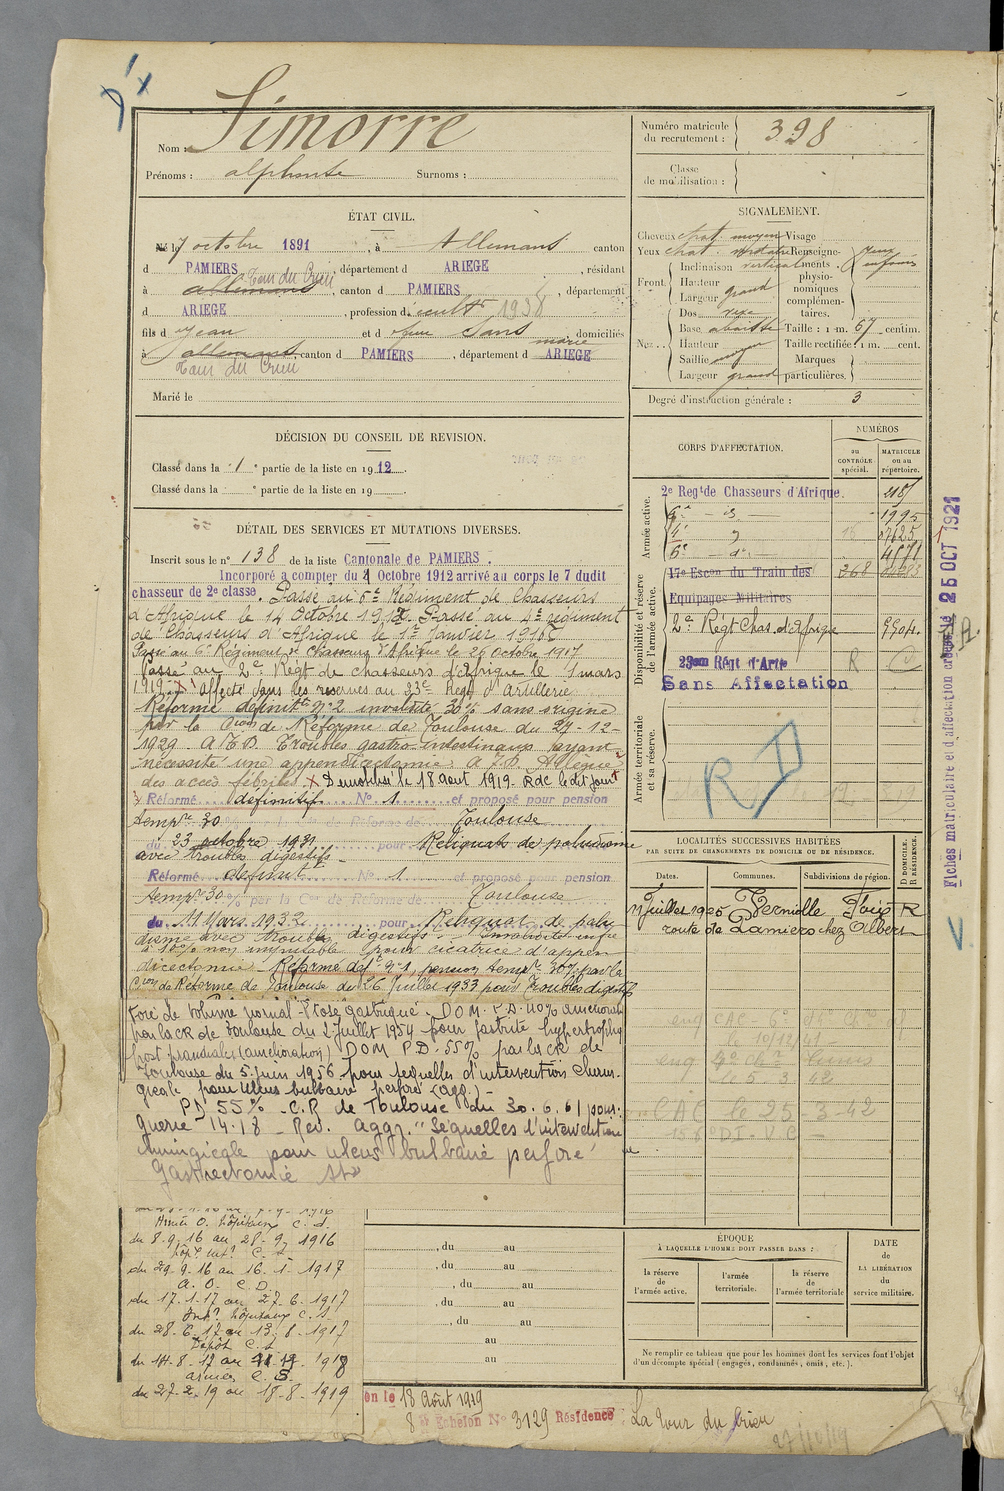 Simorre
Nom :
Prénoms : alphonse Surnoms :
Numéro matricule
du recrutement : 398
Classe
de mobilisation :
ÉTAT CIVIL.
Né le 7 octobre 1891, à Allemans canton
d PAMIERS, département d ARIEGE, résidant
Tour du Crieu
à allemans, canton d PAMIERS, département
d ARIEGE, profession d cult 1938
fils d Jean et d Sans domiciliés
marie
à allemans, canton d PAMIERS, département d ARIEGE
Tour du Crieu
Marié le
SIGNALEMENT.
Cheveux chat. moyen Visage
Yeux chat. verdatre Renseigne-
ments
physio-
nomiques
complémen-
taires.
Front. Inclinaison vertical
Hauteur
Largeur grand
Nez. Dos
Base abaissée Taille : 1 m. 67 centim.
Hauteur Taille rectifiée : 1 m. cent.
Saillie moyen Marques
Largeur grand particulières.
Degré d'instruction générale : 3
DÉCISION DU CONSEIL DE REVISION.
Classé dans la 1e partie de la liste en 1912.
Classé dans la e partie de la liste en 19
CORPS D'AFFECTATION.
NUMÉROS
au
CONTRÔLE
spécial.
MATRICULE
ou au
répertoire.
Armée active.
2e Regt de Chasseurs d'Afrique.
6e - d° - 1995
4e d° 07625
6e - d° - 4671
Disponibilité et réserve
de l'armée active.
17e Escon du Train des 268
Equipages Militaires
2e Régt Chas. d'Afrique
23em Régt d'Arte R
Sans Affectation
Armée territoriale
et sa réserve.
R D
DÉTAIL DES SERVICES ET MUTATIONS DIVERSES.
Inscrit sous le n° 138 de la liste Cantonale de PAMIERS.
Incorporé a compter du 4 Octobre 1912 arrivé au corps le 7 dudit
chasseur de 2e classe. Passé au 6e Régiment de Chasseurs
d'Afrique le 14 Octobre 1912. Passé au 4e régiment
de Chasseurs d'Afrique le 1er Janvier 1916
Passé au 6e Régiment de chasseurs d'Afrique le 26 Octobre 1917
Passé au 2e Régt de chasseurs d'Afrique le 1 mars
1919. X Affecté dans les reserves au 23e Regt d'Artillerie
Réformé définitif n° 2 invalidité 30% sans origine
par la Cion de Réforme de Toulouse du 27-12-
1929. A.T.D. Troubles gastro-intestinaux ayant
nécessité une appendicectomie. A.T.D. Allègue
des accès fébriles X Démobilisé le 18 août 1919. Rdc le dit jour
Réformé définitif N° 1 et proposé pour pension
tempre 30 % par la Con de Réforme de Toulouse
du 23 octobre 1931 pour Reliquats de paludisme
avec troubles digestifs -
Réformé definit N° 1 et proposé pour pension
tempre 30 % par la Con de Réforme de Toulouse
du 11 Mars 1932 pour Reliquat de palu-
disme avec troubles digestifs - Invalidité infre
à 10% non imputable pour cicatrice d'appen-
dicectomie - Réformé deft n° 1, pension tempre 30% par la
Cion de Réforme de Toulouse du 26 Juillet 1933 pour Troubles digestifs
Foie de volume normal - Ptose gastrique. DOM. P.D. 40% amélioration
par la CR de Toulouse du 2 juillet 1954 pour gastrite hypertrophique
post prandiales (amélioration) DOM P.D. 55% par la CR de
Toulouse du 5 juin 1956 pour sequelles d'intervention chirur-
gicale pour ulcus bulbaire perforé (agg.) -
PD 55% - C.R de Toulouse du 30.6.61 pour :
Guerre 14.18 - Rev. aggr. "Séquelles d'intervention
chirurgicale pour ulcus bulbaire perforé
Gastrectomie
LOCALITÉS SUCCESSIVES HABITÉES
PAR SUITE DE CHANGEMENTS DE DOMICILE OU DE RÉSIDENCE.
Dates. Communes. Subdivisions de région. D DOMICILE. R RÉSIDENCE.
11 Juillet 1925 Verniolle Foix R
route de Pamiers chez Albert
le 10/12/41
le 5 3 42
CAC le 25-3-42
156e D.I. - V.C -
Fiches matriculaire et d'affectation créées le 25 OCT 1921
Armée O. hôpitaux C. d.
du 8-9-16 au 28-9-1916
hôp. int. C. S.
du 29-9-16 au 16-1-1917
A. O. C. D.
du 17-1-17 au 27-6-1917
Int. hôpitaux C. S.
du 28-6-17 au 13-8-1917
Dépôt C. S.
du 14-8-17 au 1918
armées C. S.
du 27-2-19 au 18-8-1919
, du au
, du au
, du au
, du au
, du au
au
au
ÉPOQUE
À LAQUELLE L'HOMME DOIT PASSER DANS :
la réserve
de
l'armée active.
l'armée
territoriale.
la réserve
de
l'armée territoriale
DATE
de
LA LIBÉRATION
du
service militaire.
Ne remplir ce tableau que pour les hommes dont les services font l'objet
d'un décompte spécial (engagés, condamnés, omis, etc.).
en le 18 Août 1919
8 Echelon N° 3129 Résidence : La Tour du Crieu
27/10/19